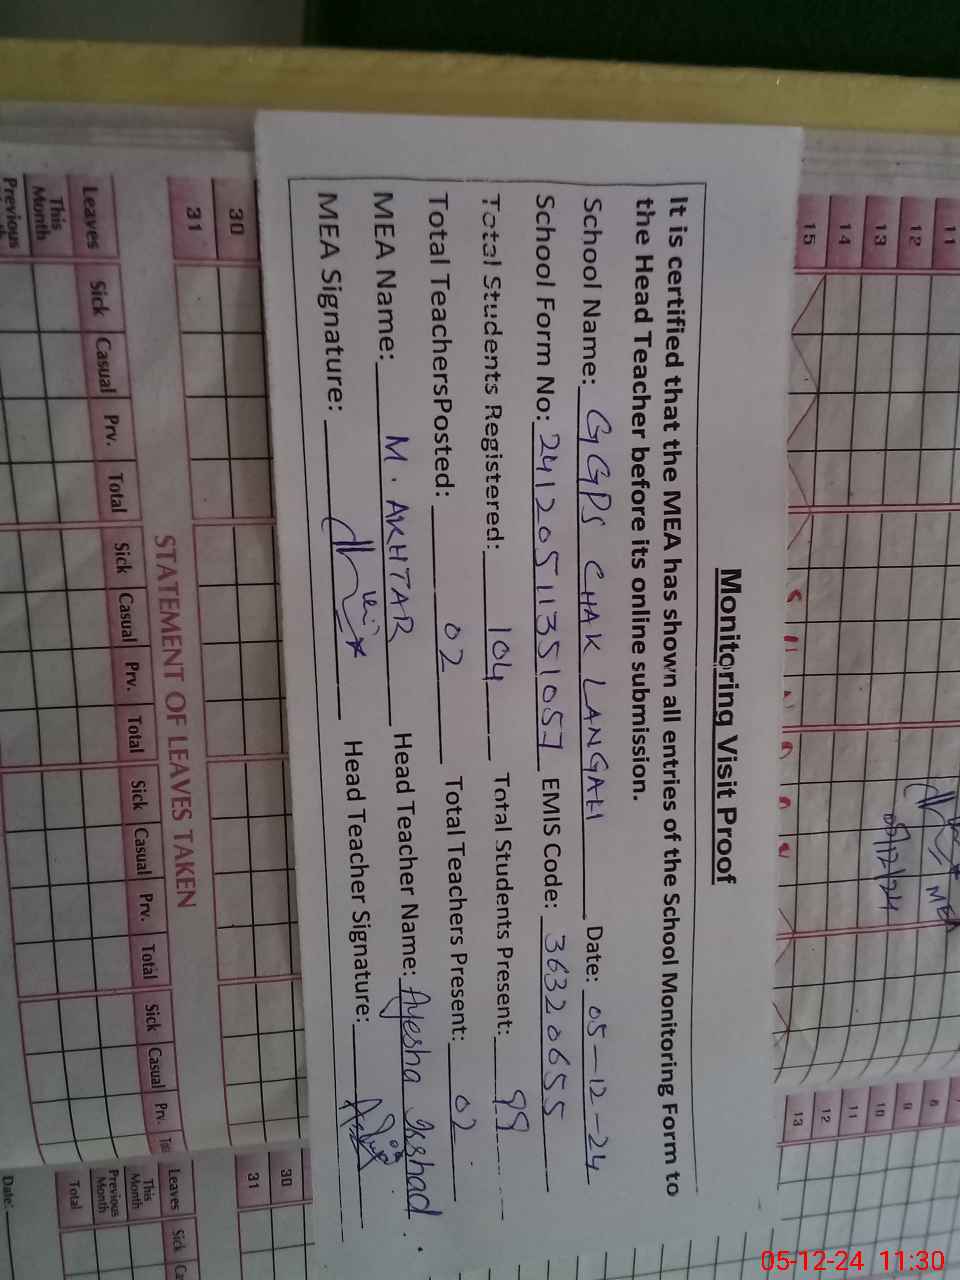 Monitoring Visit Proof
It is certified that the MEA has shown all entries of the School Monitoring Form to
the Head Teacher before its online submission.
School Name: GGPS CHAK LANGAH Date: 05-12-24
School Form No: 24120511351057 EMIS Code: 36320655
Total Students Registered: 104 Total Students Present: 99
Total TeachersPosted: 02 Total Teachers Present: 02
MEA Name: M. AKHTAR Head Teacher Name: Ayesha Irshad
MEA Signature: Head Teacher Signature:
11
12
13
14
15
MEA
05/12/24
30
31
STATEMENT OF LEAVES TAKEN
Leaves Sick Casual Prv. Total Sick Casual Prv. Total Sick Casual Prv. Total Sick Casual Prv.
This Month
Previous
10
11
12
13
30
31
Leaves Sick
This Month
Previous Month
Total
Date:
05-12-24 11:30